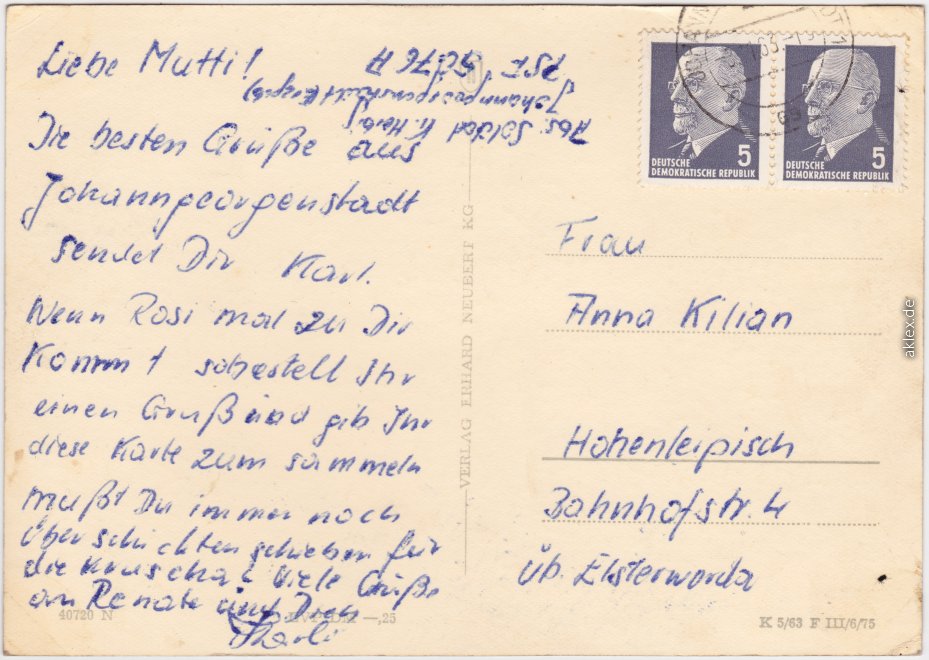 Liebe Mutti!
Abs: Soldat K. Herb
Johanngeorgenstadt
PSF
Die besten Grüße aus
Johanngeorgenstadt
sendet Dir Karl.
Wenn Rosi mal zu Dir
Kommt so bestell Ihr
einen Gruß und gib Ihr
diese Karte zum sammeln
mußt Du immer noch
überschichten schieben für
die Viele Grüße
an Renate und Dich
Karli
40720 N
EVP DM —,25
VERLAG ERHARD NEUBERT KG
DEUTSCHE
DEMOKRATISCHE REPUBLIK
5
DEUTSCHE
DEMOKRATISCHE REPUBLIK
5
Frau
Anna Kilian
Hohenleipisch
Bahnhofstr. 4
üb. Elsterwerda
K 5/63 F III/6/75
aklex.de